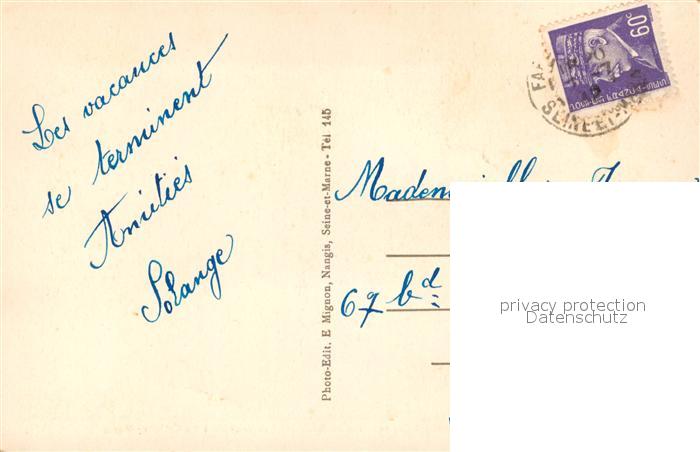 Les vacances
se terminent
Amitiés
Solange
Photo-Edit. E Mignon, Nangis, Seine-et-Marne - Tél 145
60c
SEINE-ET-M
Mademoiselle
67 bd
privacy protection
Datenschutz